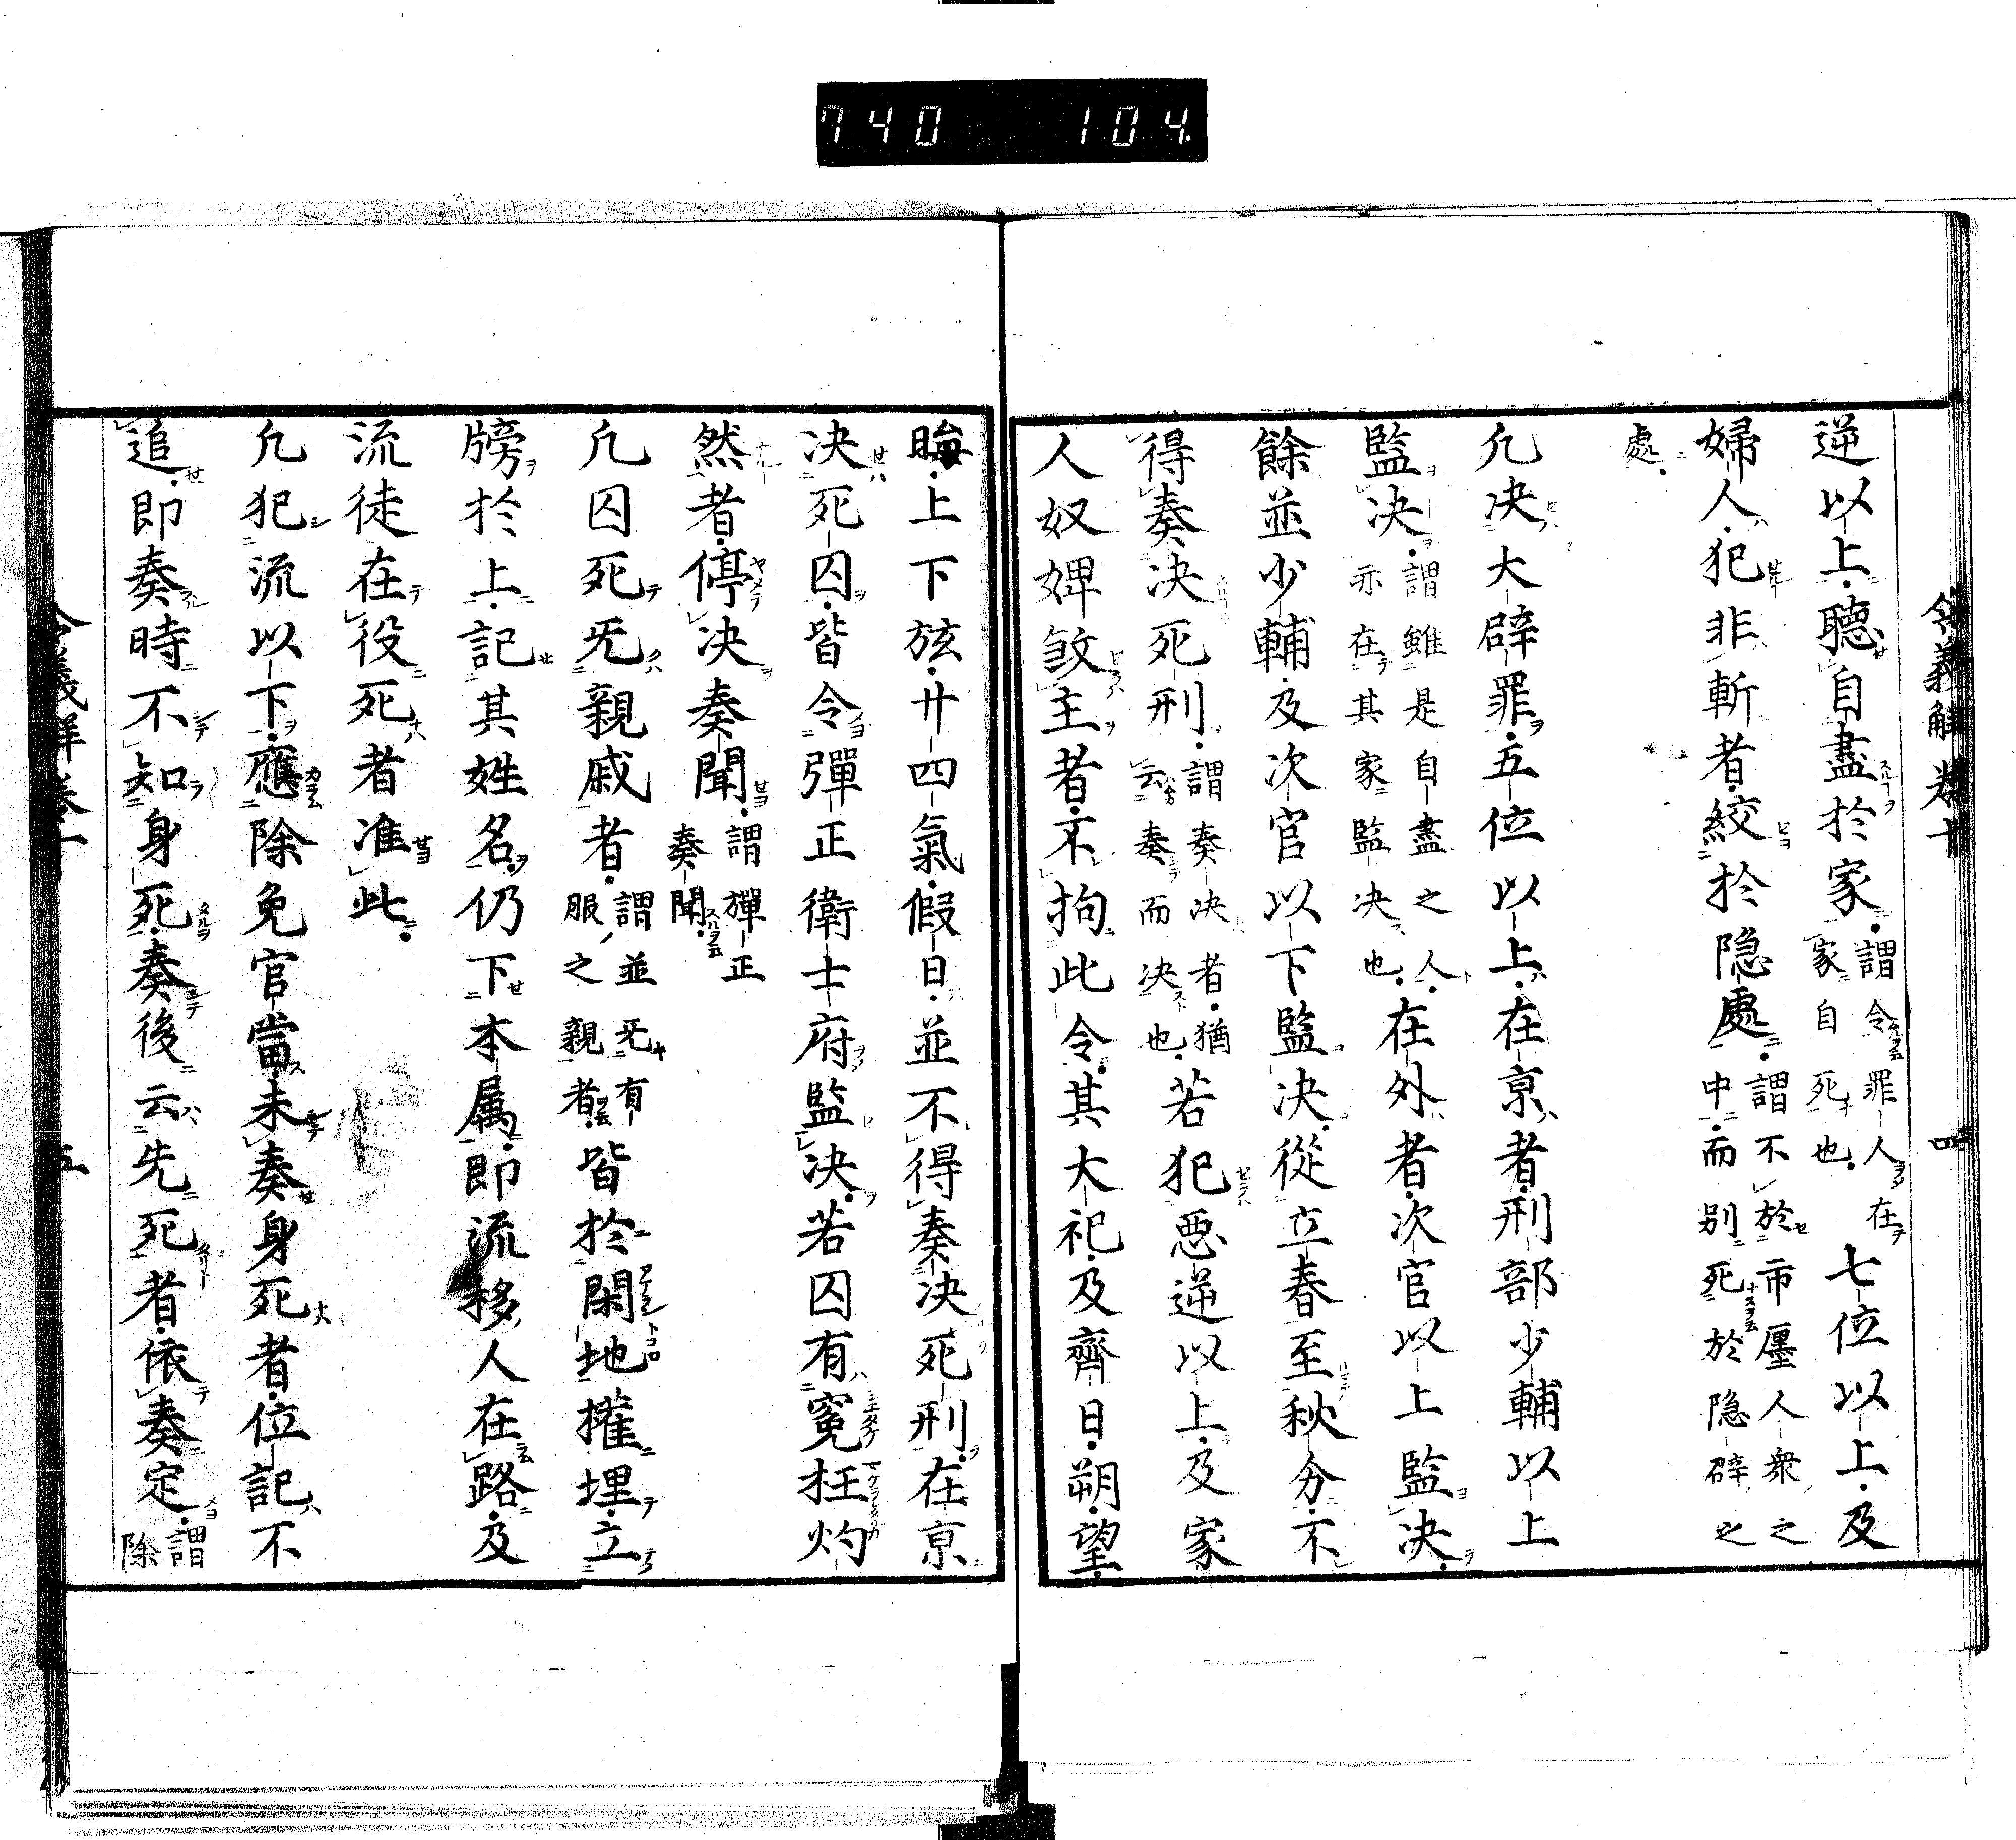 740 104
令義解卷十 四
逆以上聽自盡於家謂令罪人在家自死也七位以上及
婦人犯非斬者絞於隱處謂不於市廛人衆之中而別死於隱辟之
處
凡决大辟罪五位以上在京者刑部少輔以上
監决謂雖是自盡之人亦在其家監决也在外者次官以上監决
餘並少輔及次官以下監决從立春至秋分不
得奏决死刑謂奏决者猶云奏而决也若犯惡逆以上及家
人奴婢殺主者不拘此令其大祀及齊日朔望
晦上下弦廿四氣假日並不得奏决死刑在京
决死囚皆令彈正衛士府監决若囚有冤枉灼
然者停决奏聞謂彈正奏聞
凡囚死无親戚者謂並无有服之親者皆於閑地權埋立
牓於上記其姓名仍下本属即流移人在路及
流徒在役死者准此
凡犯流以下應除免官當未奏身死者位記不
追即奏時不知身死奏後云先死者依奏定謂除
令義解卷十 五